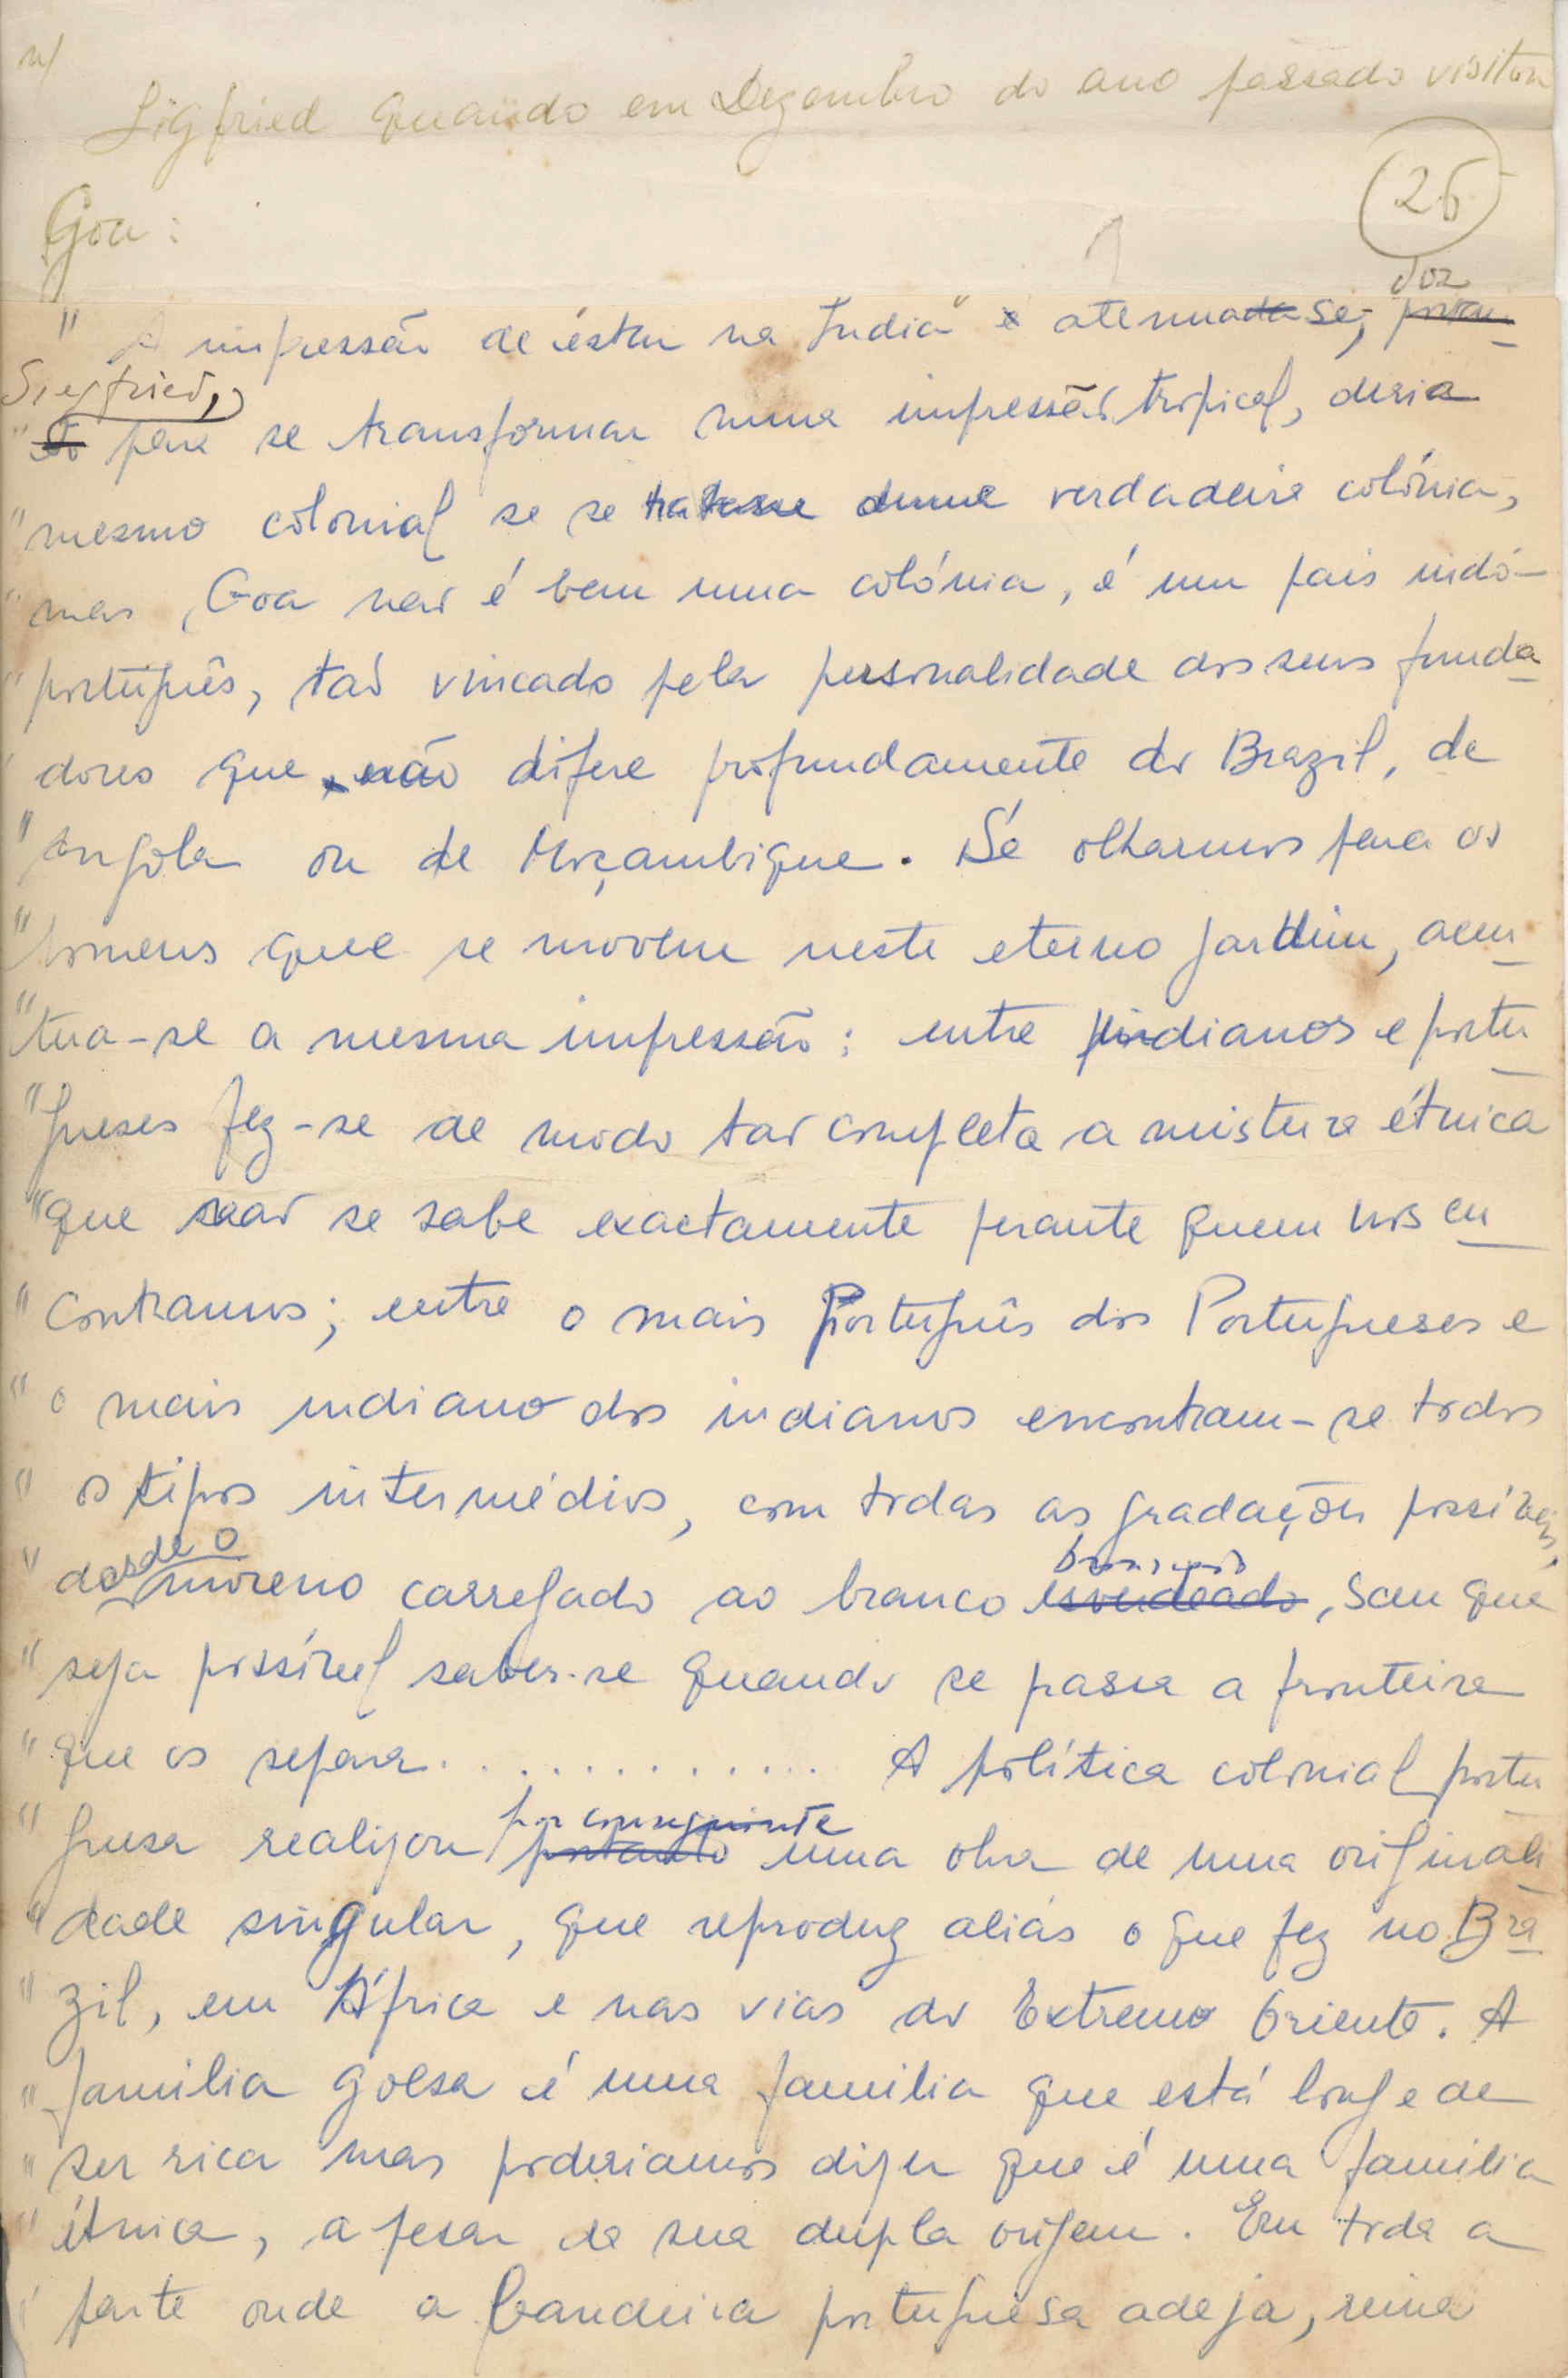 n/
Sigfried quando em Dezembro do ano passado visitou
26
Goa:
diz
" A impressão de estar na India" atenuada se;
Siegfried,
" para se transformar numa impressão tropical, diria
" mesmo colonial se se tratasse duma verdadeira colónia,
" mas, Goa não é bem uma colónia, é um país indó-
" português, tão vincado pela personalidade dos seus funda
" dores que não difere profundamente do Brazil, de
" Angola ou de Moçambique. Se olharmos para os
" homens que se movem neste eterno jardim, acen
" tua-se a mesma impressão: entre indianos e portu
" gueses fez-se de modo tão completa a mistura étnica
" que não se sabe exactamente perante quem nos en
" contramos; entre o mais Português dos Portugueses e
" o mais indiano dos indianos encontram-se todos
" os tipos intermédios, com todas as gradações possíveis,
" desde o moreno carregado ao branco bronzeado, sem que
" seja possível saber-se quando se passa a fronteira
" que os separa. . . . . . . . . . . . . A política colonial portu
por conseguinte
" guesa realizou portanto uma obra de uma originali
" dade singular, que reproduz aliás o que fez no Bra
" zil, em África e nas vias do Extremo Oriente. A
" familia goesa é uma familia que está longe de
" ser rica mas poderiamos dizer que é uma familia
" étnica, a pesar da sua dupla origem. Em toda a
" parte onde a bandeira portuguesa adeja, reina